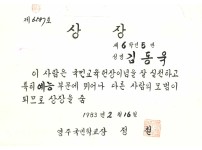 상장
제 6 학년 5 반
성명 김동욱
이 사람은 국민교육헌장이념을 잘 실천하고
특히 예능 부문에 뛰어나 다른 사람의 모범이
되므로 상장을 줌
1983년 2월 16일
국민학교장